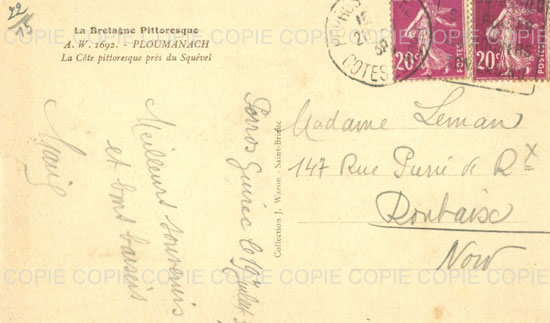 22
15
La Bretagne Pittoresque
A. W. 1692. - PLOUMANACH
La Côte pittoresque près du Squével
20c POSTES
20c POSTES
COTES
Perros Guirec le
Meilleurs souvenirs
et bons baisers
Collection J. Waron - Saint-Brieuc
Madame Leman
147 Rue Pierre de Rx
Roubaix
Nord
COPIE COPIE COPIE COPIE COPIE COPIE COPIE
COPIE COPIE COPIE COPIE COPIE COPIE COPIE
COPIE COPIE COPIE COPIE COPIE COPIE COPIE